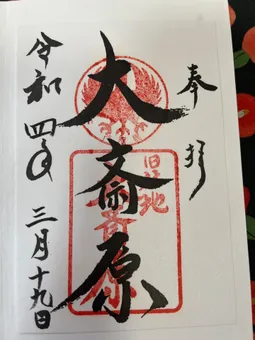 奉拝
旧社地
大斎原
令和四年三月十九日